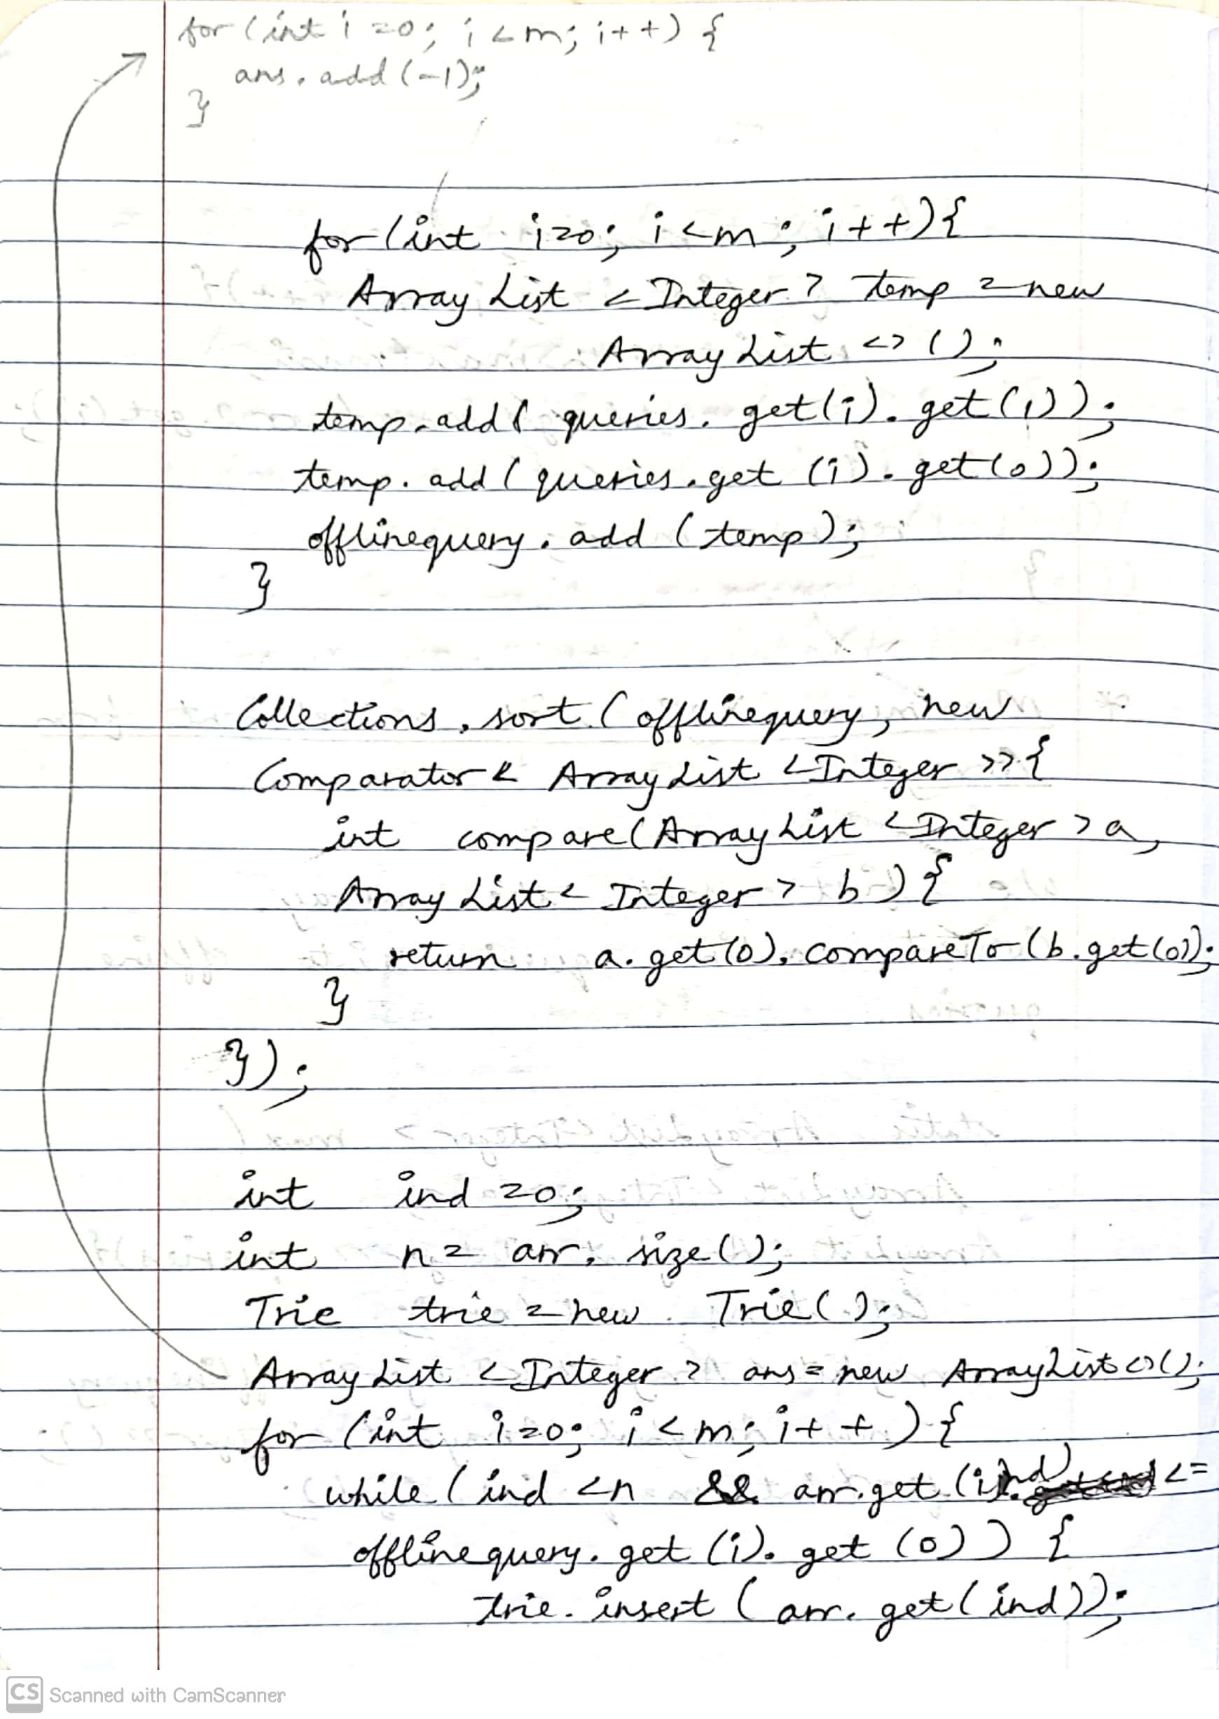 for (int i=0; i<m; i++) {
ans.add(-1);
}
for(int i=0; i<m; i++){
ArrayList <Integer> temp = new
ArrayList <>();
temp.add( queries. get(i). get(1));
temp. add( queries. get (i). get(0));
offlinequery. add (temp);
}
Collections. sort (offlinequery, new
Comparator < ArrayList <Integer>>{
int compare(ArrayList <Integer> a,
ArrayList < Integer> b ) {
return a. get(0). compareTo (b. get(0));
}
});
int ind =0;
int n= arr. size();
Trie trie = new Trie();
ArrayList <Integer> ans = new ArrayList<>();
for (int i=0; i<m; i++) {
while (ind <n && arr.get (ind) <=
offlinequery. get (i). get (0)) {
trie. insert (arr. get (ind));
CS Scanned with CamScanner